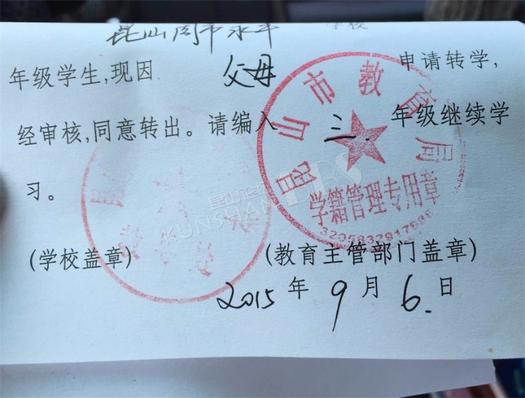 昆山周市永平
年级学生,现因 父母 申请转学,
经审核,同意转出。请编入 三 年级继续学
习。
昆山市教育局
学籍管理专用章
(学校盖章) (教育主管部门盖章)
2015 年 9 月 6. 日